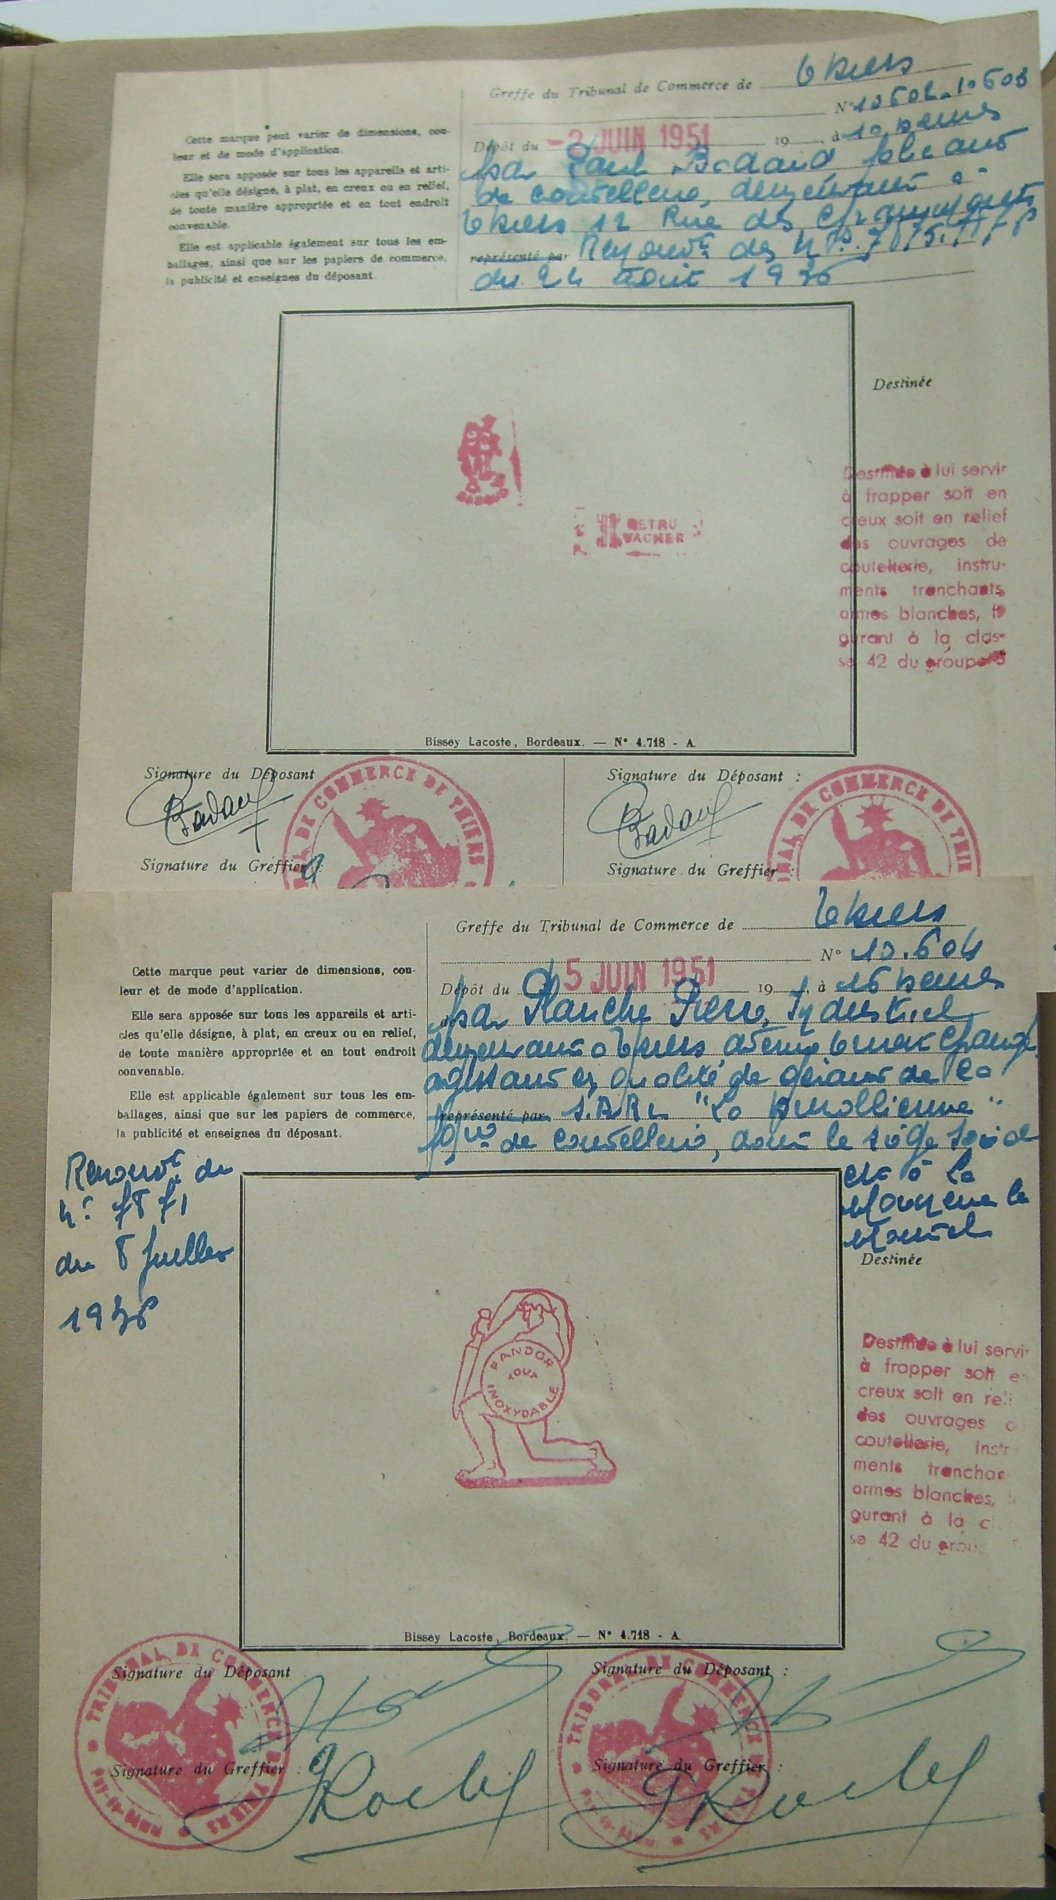 Greffe du Tribunal de Commerce de Thiers
N° 10602-10603
Dépôt du -2 JUIN 1951 19 à 10 heures
Cette marque peut varier de dimensions, cou-
leur et de mode d'application.
Elle sera apposée sur tous les appareils et arti-
cles qu'elle désigne, à plat, en creux ou en relief,
de toute manière appropriée et en tout endroit
convenable.
Elle est applicable également sur tous les em-
ballages, ainsi que sur les papiers de commerce,
la publicité et enseignes du déposant.
par Paul Badaud fabricant
de coutellerie, demeurant à
Thiers 12 Rue des
représenté par Renouvt des Nos
du 24 août 1936
Destinée
BADAUD
RETRU
VACHER
Destinée à lui servir
à frapper soit en
creux soit en relief
des ouvrages de
coutellerie, instru-
ments tranchants,
armes blanches, fi-
gurant à la clas-
se 42 du groupe
Bissey Lacoste, Bordeaux. — N° 4.718 - A
Signature du Déposant
Signature du Déposant :
Badaud
Badaud
Signature du Greffier :
Signature du Greffier :
TRIBUNAL DE COMMERCE DE THIERS
NAL DE COMMERCE DE THIE
Greffe du Tribunal de Commerce de Thiers
N° 10.604
Dépôt du 5 JUIN 1951 19 à 16 heures
Cette marque peut varier de dimensions, cou-
leur et de mode d'application.
Elle sera apposée sur tous les appareils et arti-
cles qu'elle désigne, à plat, en creux ou en relief,
de toute manière appropriée et en tout endroit
convenable.
Elle est applicable également sur tous les em-
ballages, ainsi que sur les papiers de commerce,
la publicité et enseignes du déposant.
par Planche Pierre, Industriel
demeurant à Thiers, avenue
agissant en qualité de gérant de la
représenté par S.A.R.L "La Durollienne"
de coutellerie, dont le siège social
est à la
Monnerie le
Montel
Renouvt du
n°
du 8 Juillet
1936
Destinée
PANDOR
TOUT
INOXYDABLE
Destinée à lui servir
à frapper soit e
creux soit en reli
des ouvrages d
coutellerie, instr
ments tranchan
armes blanches,
gurant à la c
se 42 du grou
Bissey Lacoste, Bordeaux. — N° 4.718 - A
Signature du Déposant
Signature du Déposant :
Signature du Greffier :
Signature du Greffier :
TRIBUNAL DE COMMERCE DE THIERS
PUY-DE-DOME
TRIBUNAL DE COMMERCE DE THIERS
PUY-DE-DOME